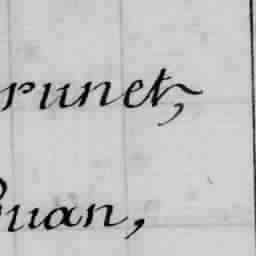 runet,
uan,